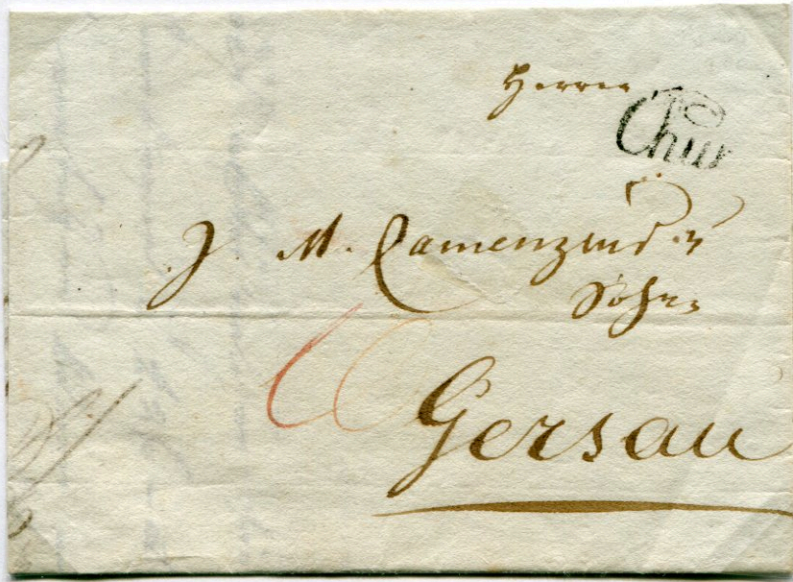 Herren
Chur
J. M. Camenzind &
Söhne
6
Gersau